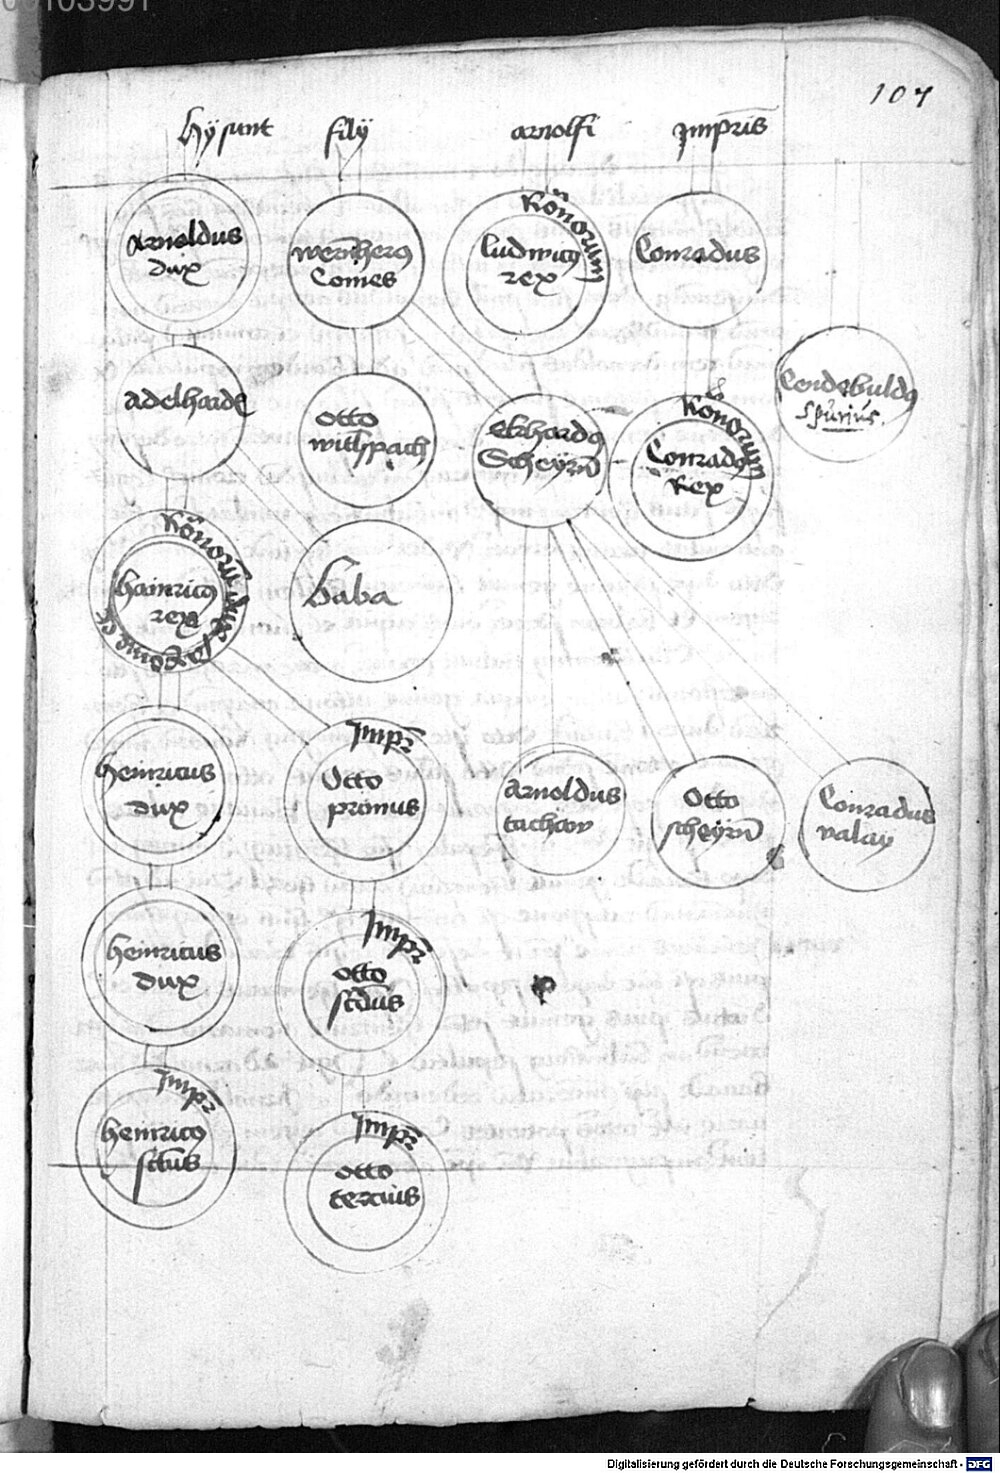 00103991
107
hÿ sunt filÿ arnolfi Impr̄is
Arnoldus
dux
wernherꝰ
Comes
Ro͞norum
ludwicꝰ
rex
Conradus
Cendebuldꝰ
spurius.
adelhardꝰ
otto
witlspach
ekhardꝰ
Scheÿrn̄
Ro͞norum
Conradꝰ
Rex
hainricꝰ
rex
Baba
heinricus
dux
Impr̄
Otto
primus
arnoldus
tachaw
Otto
scheÿrn̄
Conradus
valay
heinricus
dux
Impr̄
otto
sc̄dus
Impr̄
heinricꝰ
sc̄tus
Impr̄
otto
tercius
Digitalisierung gefördert durch die Deutsche Forschungsgemeinschaft - DFG